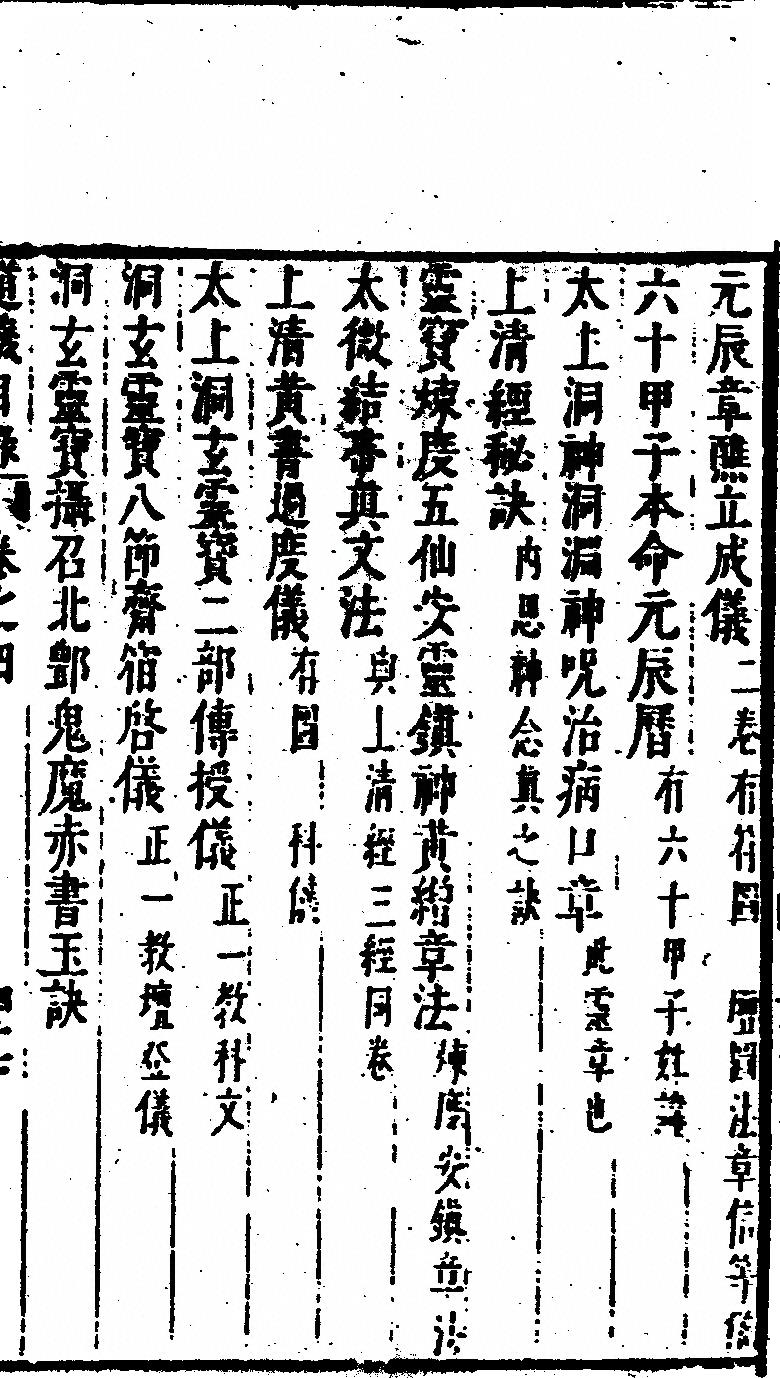 元辰章醮立成儀二卷有符圖 壇圖法章信等儀
六十甲子本命元辰曆有六十甲子姓諱
太上洞神洞淵神呪治病口章此靈章也
上清經秘訣內思神念真之訣
靈寶煉度五仙安靈鎮神黃繒章法煉度安鎮章法
太微結帶真文法與上清經三經同卷
上清黃書過度儀有圖 科儀
太上洞玄靈寶二部傳授儀正一教科文
洞玄靈寶八節齋宿啓儀正一教壇登儀
洞玄靈寶攝召北酆鬼魔赤書玉訣
道藏目錄 卷之四